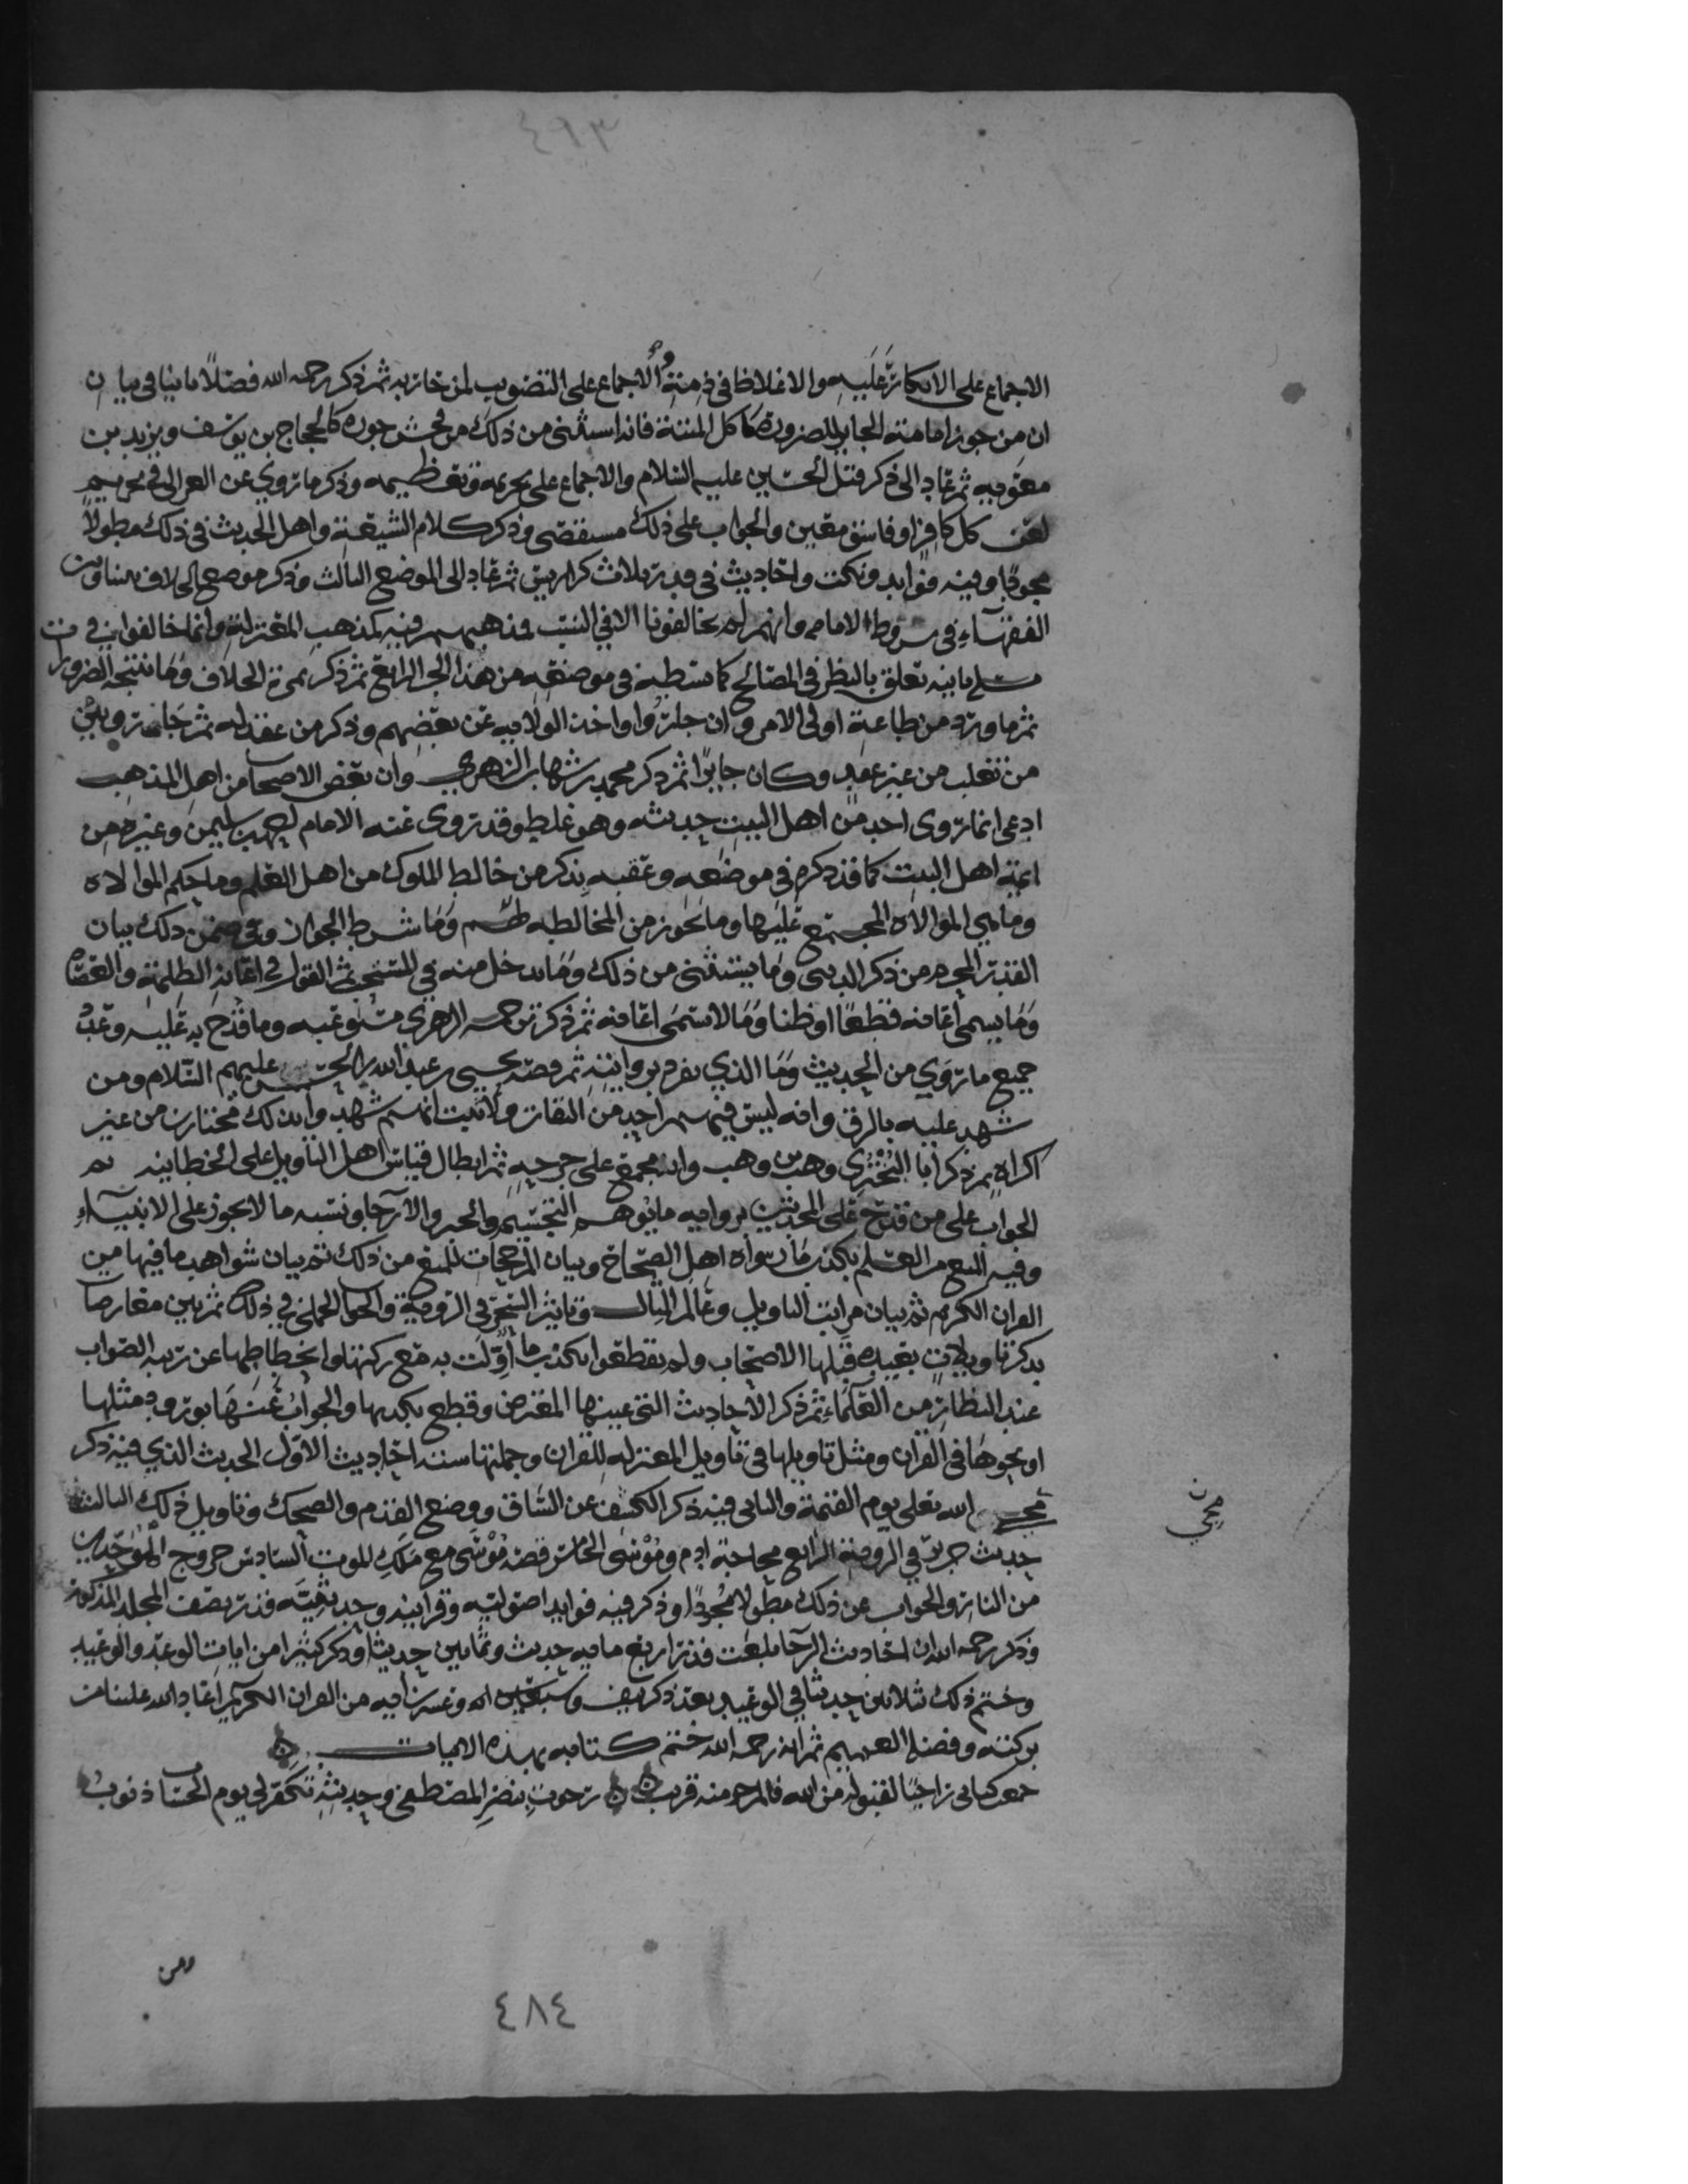 ٤٩٣
الاجماع على الانكار عليه والاغلاظ في ذمته والاجماع على التصويب لمن حاربه ثم ذكر رحمه الله فصلًا ثانيا في بيان
ان من جوز امامة الجاير للضرورة كاكل الميتة فانه استثنى من ذلك من فحش جوره كالحجاج بن يوسف ويزيد بن
معويه ثم عاد الى ذكر قتل الحسين عليه السلام والاجماع على تحريمه وتعظيمه وذكر ما روي عن الغزالي في تحريم
لعن كل كافر او فاسق معين والجواب على ذلك مستقصى وذكر كلام الشيعة واهل الحديث في ذلك مطولًا
مجودًا وفيه فوايد ونكت واحاديث في قدر ثلاث كراريس ثم عاد الى الموضع الثالث وذكر موضع الخلاف بيننا وبين
الفقهاء في شروط الامامه وانهم لم يخالفونا الا في النسب فمذهبهم فيه كمذهب المعتزلة وانما خالفوا في
بما فيه تعلق بالنظر في المصالح كما نبسطه في موضعه من هذا الجزء الرابع ثم ذكر ثمرة الخلاف وما تنتجه الضرورات
ثم ما ورد من طاعة اولي الامر وان جاروا واخذ الولايه عن بعضهم وذكر من عقد له ثم جار وبين
من تغلب من غير عقد وكان جايرًا ثم ذكر محمد بن شهاب الزهري وان بعض الاصحاب من اهل المذهب
ادعى انما روى احد من اهل البيت حديثه وهو غلط وقد روى عنه الامام احمد بن سليمن وغيره من
ايمة اهل البيت كما قد ذكره في موضعه وعقبه بذكر من خالط الملوك من اهل العلم وما حكم الموالاه
وما هي الموالاه المجتمع عليها وما يجوز من المخالطه لهم وما شرط الجواز وفي ضمن ذلك بيان
القدر المحرم من ذكر الدنيا وما يستثنى من ذلك وما يدخل منه في المستحب ثم القول في اعانة الظلمة والعصاه
وما يسمى اعانه قطعًا او ظنا وما لا يسمى اعانه ثم ذكر ترجمه الزهري مستوعبه وما قدح به عليه وعدد
جميع ما روي من الحديث وما الذي تفرد بروايته ثم قصة يحيى بن عبد الله بن الحسن عليهم السلام ومن
شهد عليه بالرق وانه ليس فيهم احد من الثقات ولا ثبت انهم شهدوا بذلك مختارين من غير
اكراه ثم ذكر ابا البختري وهب بن وهب وانه مجمع على جرحه ثم ابطال قياس اهل التاويل على الخطابيه ثم
الجواب على من قدح على المحدثين بروايه ما يوهم التجسيم والجبر والارجا ونسبه ما لا يجوز على الانبياء
وفيه المنع من العلم بكذب ما رواه اهل الصحاح وبيان المرجحات للمنع من ذلك ثم بيان شواهد ما فيها من
القران الكريم ثم بيان مراتب التاويل وعالم المثال وتاثير السحر في الروية ثم بين معارضا
بذكر تاويلات بعيده قبلها الاصحاب ولم يقطعوا بكذب ما أُوِّلت به مع ركتها وانحطاطها عن رتبه الصواب
عند النظار من العلماء ثم ذكر الاحاديث التي عينها المعترض وقطع بكذبها والجواب عنها بورود مثلها
او نحوها في القران ومثل تاويلها في تاويل المعتزله للقران وجملتها ستة احاديث الاول الحديث الذي فيه ذكر
مجي الله تعلى يوم القيمة والثاني فيه ذكر الكشف عن الساق ووضع القدم والضحك وتاويل ذلك الثالث
حديث جرير في الروية الرابع محاجة ادم وموسى الخامس قصة موسى مع ملك الموت السادس خروج الموحدين
من النار والجواب عن ذلك مطولًا مجودًا وذكر فيه فوايد اصوليه وقرانيه وحديثيه قدر نصف المجلد المذكور
وذكر رحمه الله ان احاديث الرجا بلغت قدر اربع مايه حديث وثمانين حديثا وذكر كثيرا من ايات الوعد والوعيد
وختم ذلك بثلاثين حديثا في الوعيد بعد ذكر نيف وسبعين ايه من القران الكريم اعاد الله علينا من
بركته وفضله العميم ثم انه رحمه الله ختم كتابه بهذه الابيات
جمعت كتابي راجيًا لقبوله من الله فالمرجو منه قريب رجوت بنصر المصطفى وحديثه تكفر لي يوم الحساب ذنوب
مجي
ومن
٤٨٤